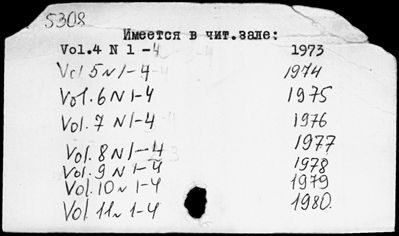 5308
Имеется в чит.зале:
Vol.4 N 1-4 1973
Vol 5 N 1-4 1974
Vol.6 N 1-4 1975
Vol.7 N 1-4 1976
Vol.8 N 1-4 1977
Vol.9 N 1-4 1978
Vol.10 N 1-4 1979
Vol 11 N 1-4 1980.